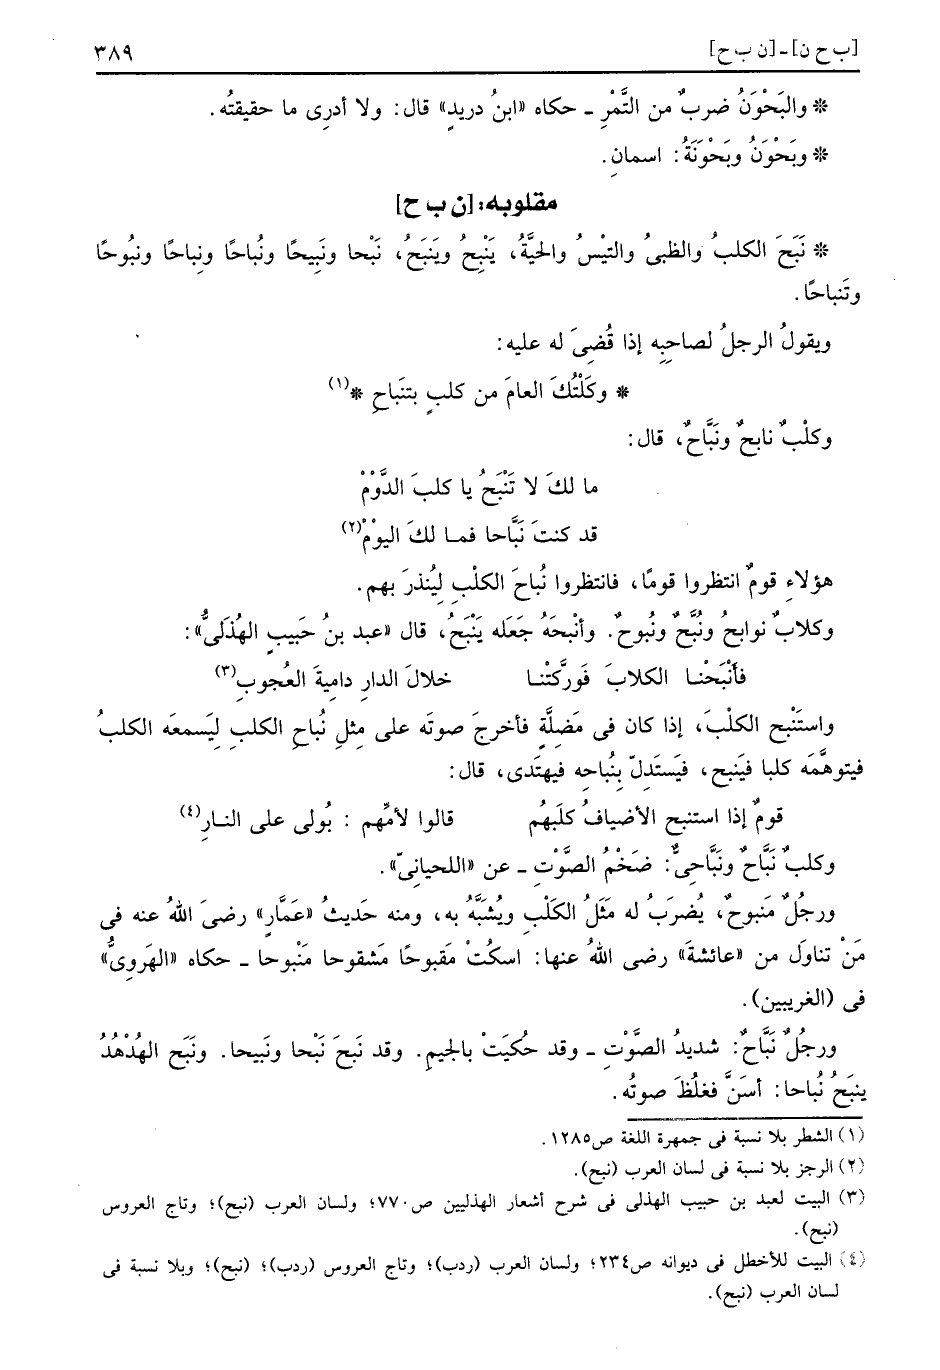 [ب ح ن] ـ [ن ب ح]
٣٨٩
* والبَحْوَنُ ضربٌ من التَّمْرِ ـ حكاه «ابنُ دريدٍ» قال: ولا أدرِى ما حقيقتُه.
* وبَحْوَنُ وبَحْوَنَةُ: اسمانِ.
مقلوبه: [ن ب ح]
* نَبَحَ الكلبُ والظبىُ والتيْسُ والحيَّةُ، يَنْبِحُ ويَنبَحُ، نَبْحا ونَبِيحًا ونُباحًا ونِباحًا ونبُوحًا
وتَنباحًا.
ويقولُ الرجلُ لصاحبِه إذا قُضِىَ له عليه:
* وكَلْتُكَ العامَ من كلبٍ بتنَباحِ *(١)
وكلْبٌ نابحٌ ونَبَّاحٌ، قال:
ما لكَ لا تَنْبَحُ يا كلبَ الدَّوْمْ
قد كنتَ نَبَّاحا فمـا لكَ اليوْمْ(٢)
هؤلاءِ قومٌ انتظروا قومًا، فانتظروا نُباحَ الكلْبِ لِيُنذرَ بهم.
وكلابٌ نوابحُ ونُبَّحٌ ونُبوحٌ. وأنْبحَهُ جَعَله يَنْبَحُ، قال «عبد بنُ حَبيبٍ الهُذَلىُّ»:
فأنْبَحْنـا الكلابَ فَورَّكَتْنـا خلالَ الدارِ دامِيةَ العُجوبِ(٣)
واستَنْبح الكلْبَ، إذا كان فى مَضِلَّةٍ فأخرجَ صوتَه على مِثلِ نُباحِ الكلبِ لِيَسمعَه الكلبُ
فيتوهَّمَه كلبا فيَنبح، فيَستَدلّ بِنُباحِه فيهتَدى، قال:
قومٌ إذا استنبح الأضيافُ كلَبَهُم قالوا لأمِّهم : بُولى على النـارِ(٤)
وكلبٌ نَبَّاحٌ ونَبَّاحِىٌّ: ضَخْمُ الصَّوْتِ ـ عن «اللحيانىّ».
ورجُلٌ مَنبوحٌ، يُضرَبُ له مَثَلُ الكَلْبِ ويُشبَّهُ به، ومنه حَديثُ «عَمَّارٍ» رضىَ اللهُ عنه فى
مَنْ تناوَل من «عائشةَ» رضى اللهُ عنها: اسكُتْ مَقبوحًا مَشقوحا مَنْبوحا ـ حكاه «الهَروِىُّ»
فى (الغريبين).
ورجُلٌ نَبَّاحٌ: شديدُ الصَّوْتِ ـ وقد حُكيَتْ بالجيمِ. وقد نَبَحَ نَبْحا ونَبيحا. ونَبَح الهُدْهُدُ
ينبَحُ نُباحا: أسَنَّ فغلُظَ صوتُه.
(١) الشطر بلا نسبة فى جمهرة اللغة ص١٢٨٥.
(٢) الرجز بلا نسبة فى لسان العرب (نبح).
(٣) البيت لعبد بن حبيب الهذلى فى شرح أشعار الهذليين ص٧٧٠؛ ولسان العرب (نبح)؛ وتاج العروس
(نبح).
(٤) البيت للأخطل فى ديوانه ص٢٣٤؛ ولسان العرب (ردب)؛ وتاج العروس (ردب)؛ (نبح)؛ وبلا نسبة فى
لسان العرب (نبح).